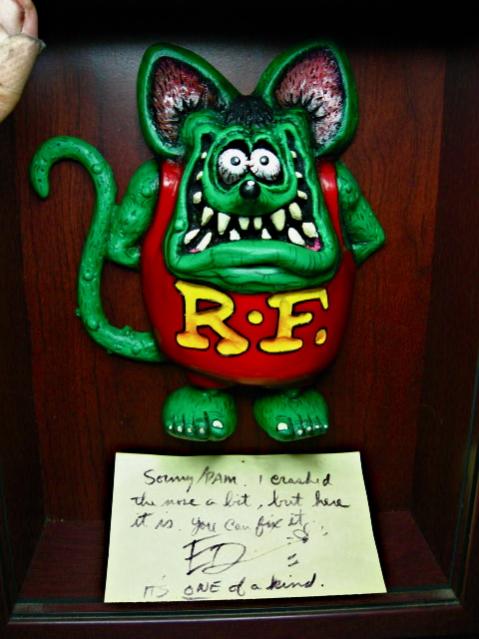 R.F.
Sonny/PAM. I crashed
the nose a bit, but here
it is. You can fix it.
ED
it's ONE of a kind.